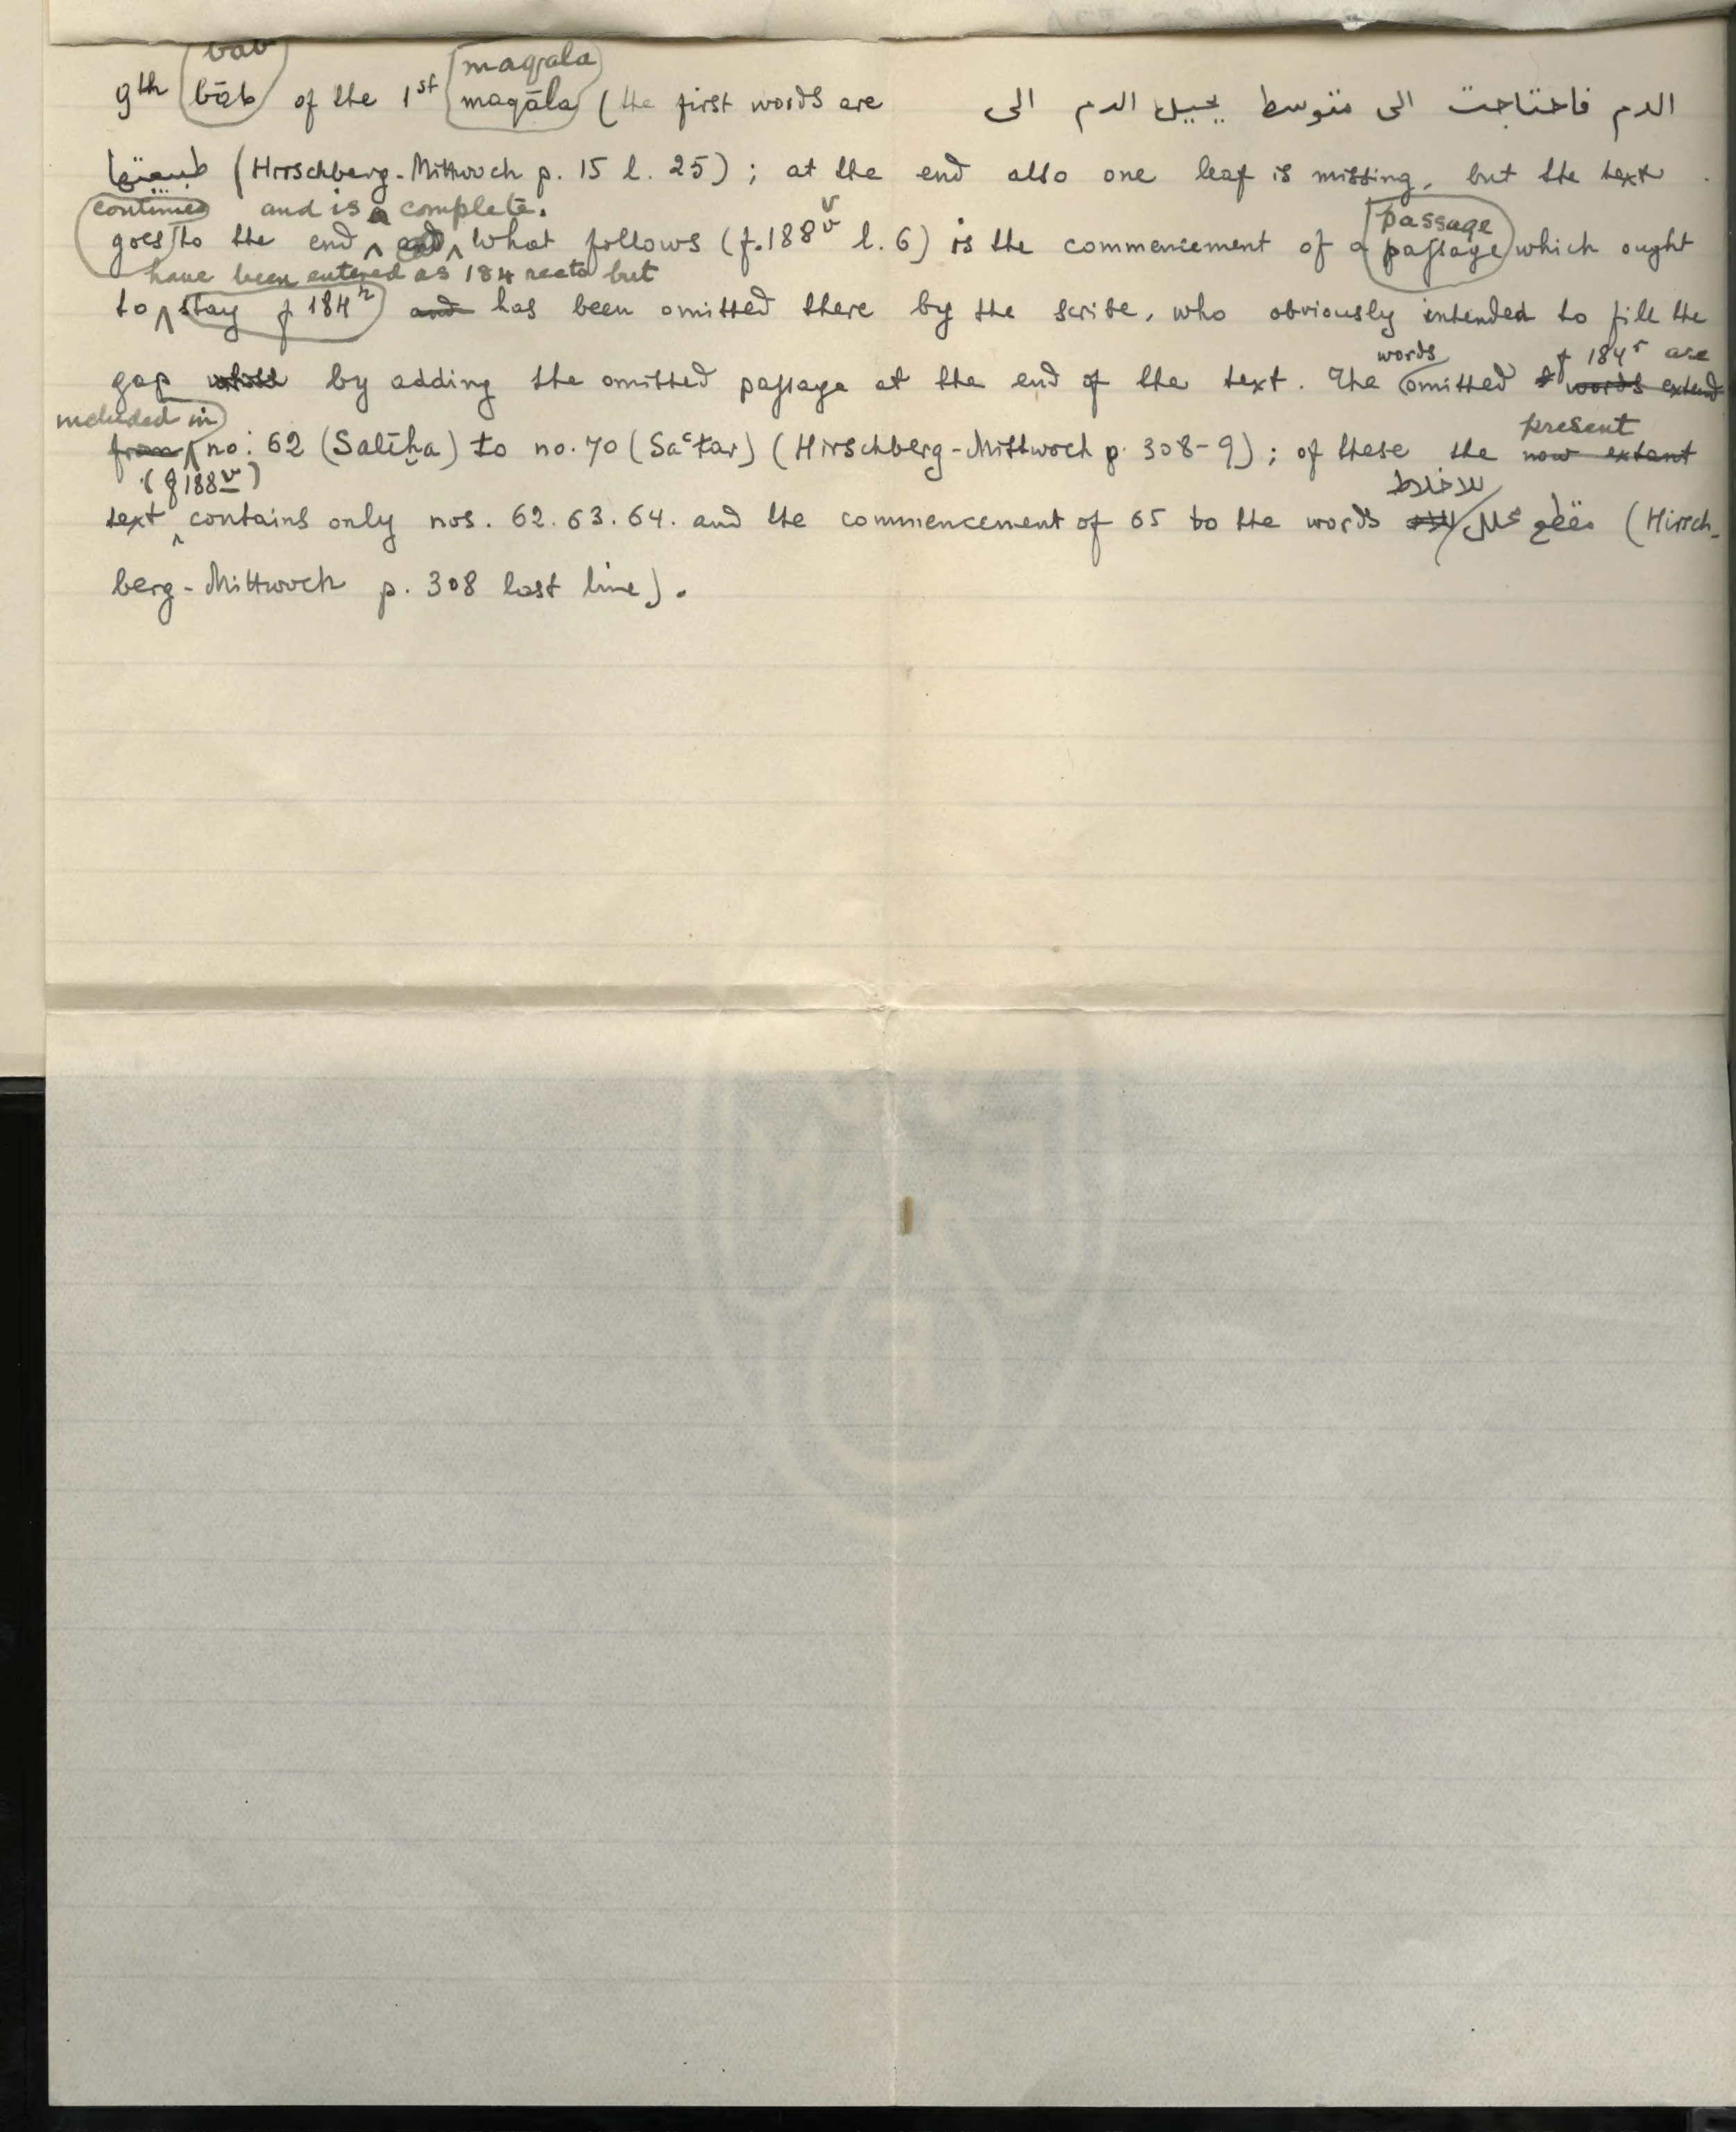 bab maqala
9th bāb of the 1st maqāla (the first words are الدم فاحتاجت الى متوسط يحيل الدم الى
طبيعتها (Hirschberg-Mittwoch p. 15 l. 25) ; at the end also one leaf is missing, but the text
continues and is complete. v passage
goes to the end What follows (f. 188v l. 6) is the commencement of a passage which ought
have been entered as 184 recto but
to stay f 184r and has been omitted there by the scribe, who obviously intended to fill the
words f 184r are
gap by adding the omitted passage at the end of the text. The omitted words extend
included in present
from no: 62 (Salīḫa) to no. 70 (Saʿtar) (Hirschberg-Mittwoch p. 308-9) ; of these the now extant
(f 188v) للاخلاط
text contains only nos. 62. 63. 64. and the commencement of 65 to the words مقطع محلل (Hirsch-
berg-Mittwoch p. 308 last line).